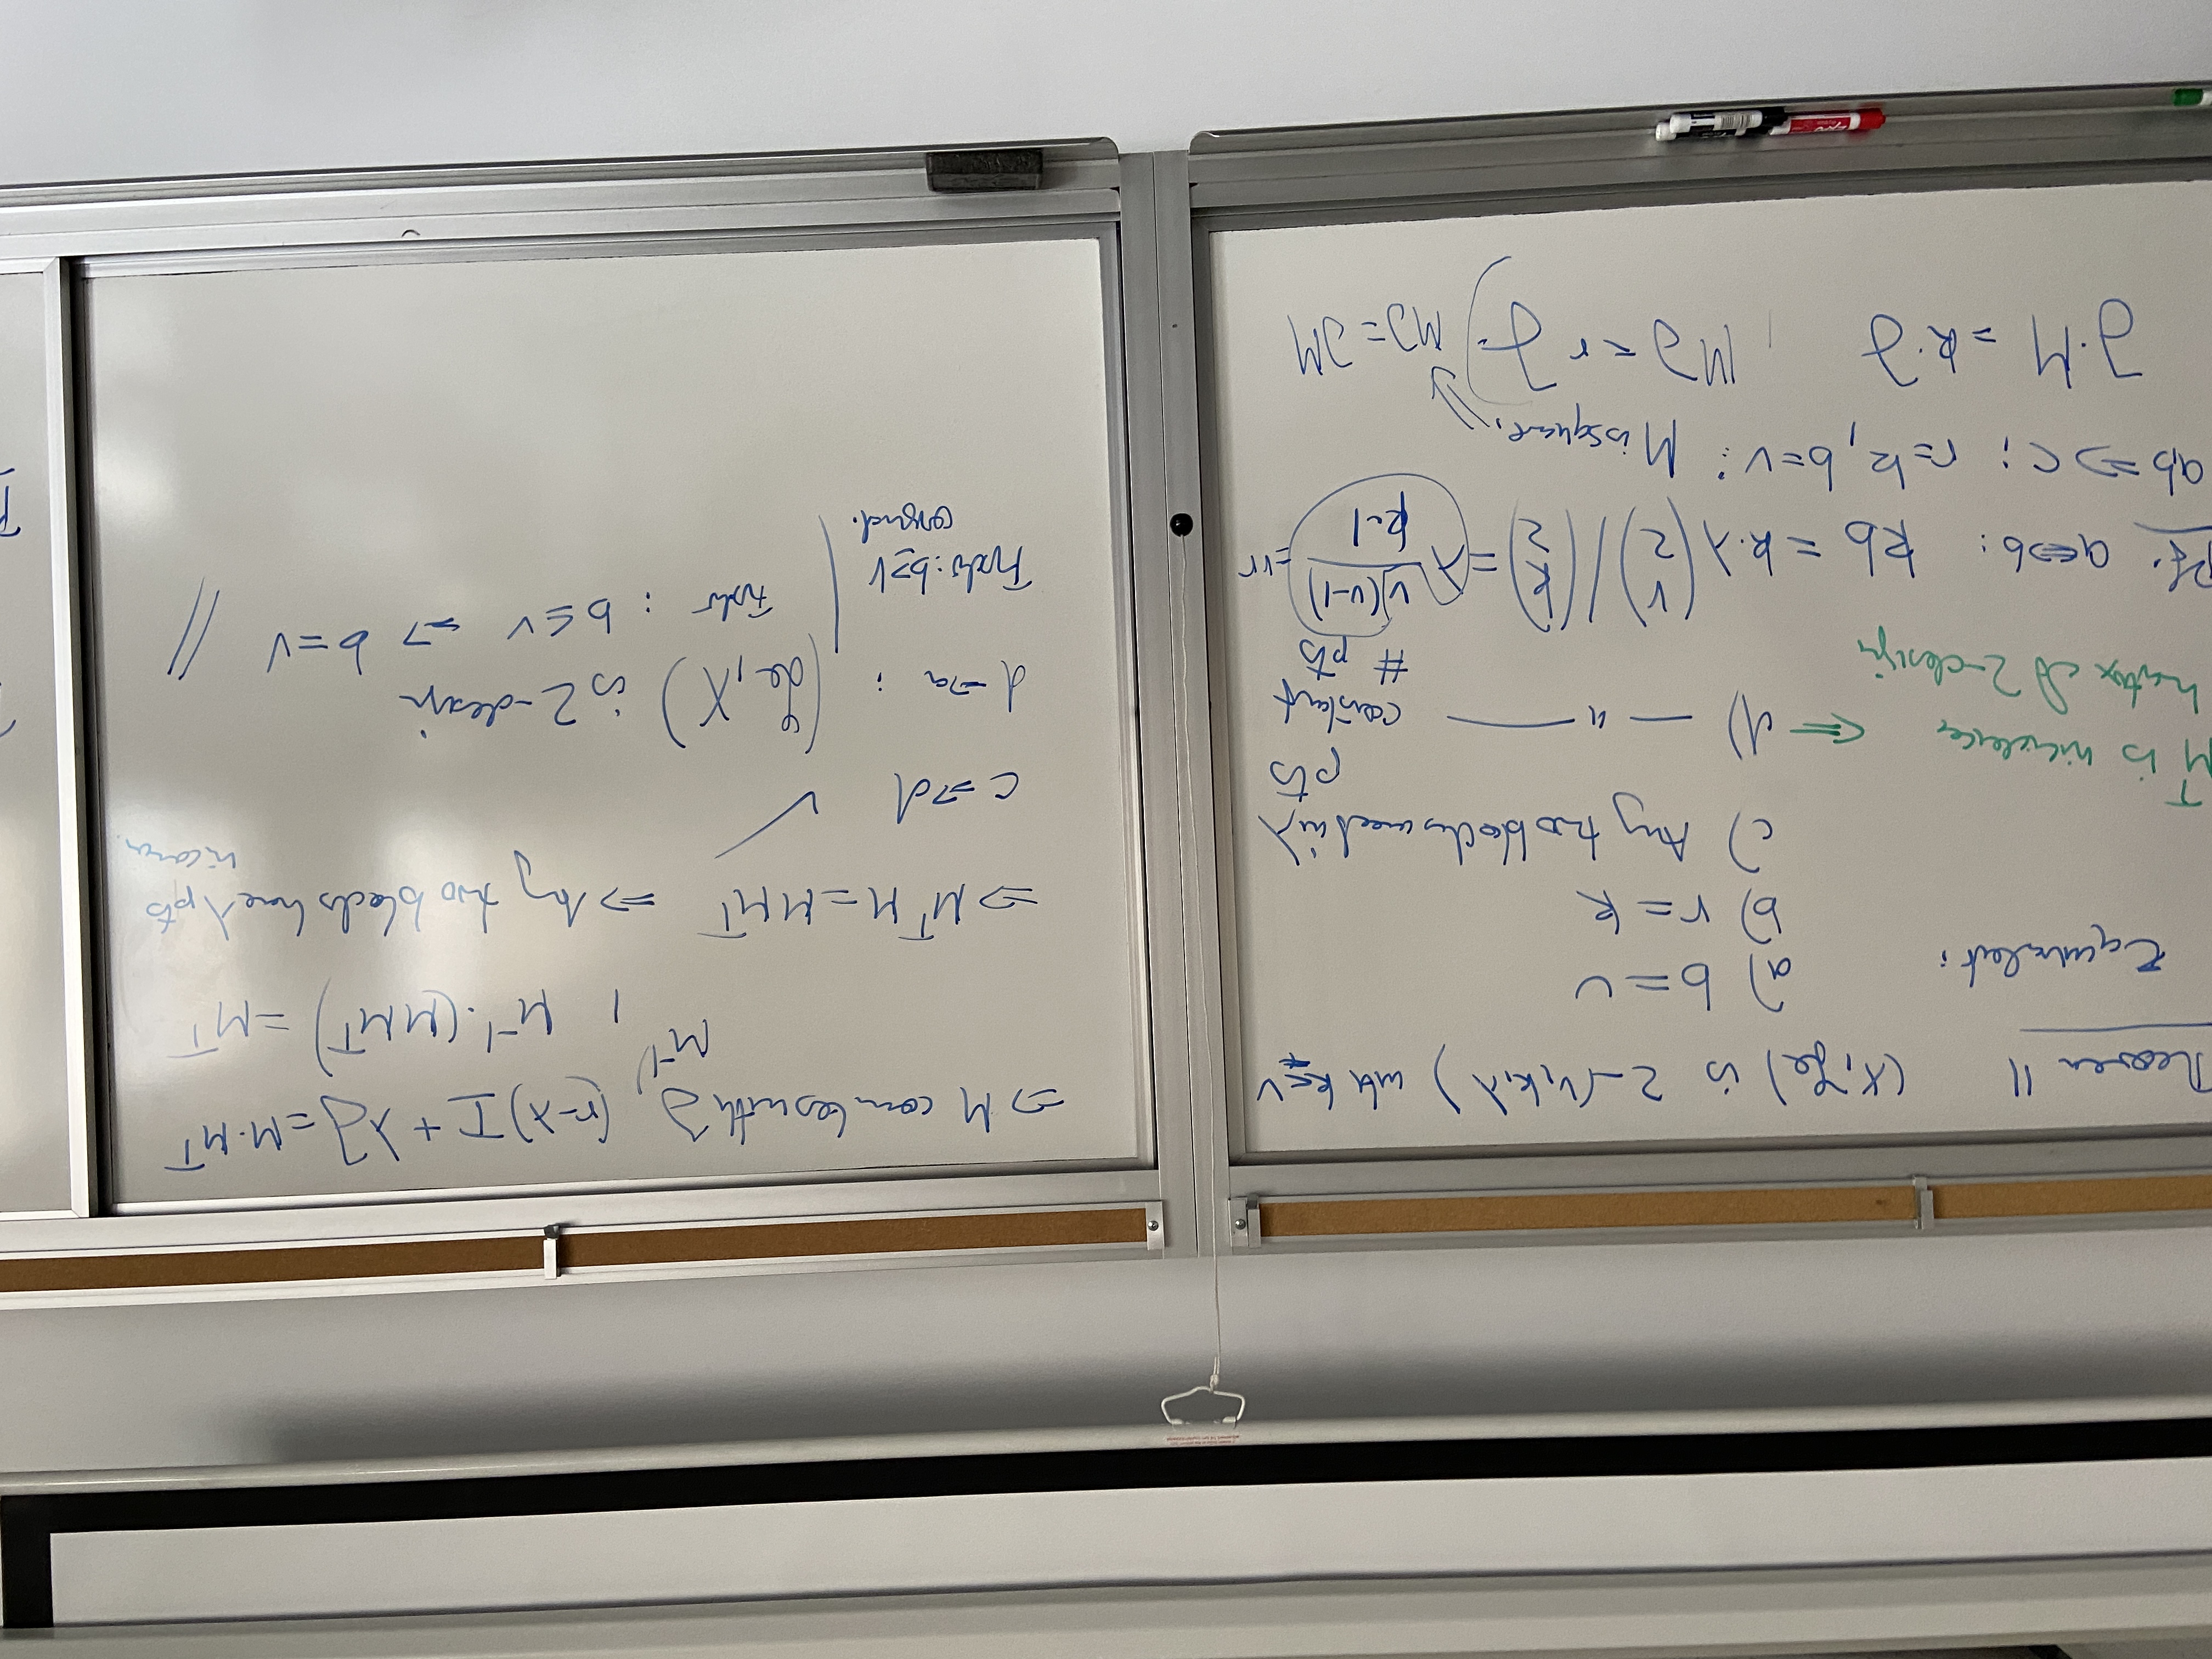 Theorem 11 (X, ℬ) is 2-(v,k,λ) with k≤v
Equivalent:
a) b = v
b) r = k
c) Any two blocks meet in λ pts
d) — " — constant # pts
⇐
M^T is incidence
matrix of 2-design
Pf: a⇔b: kb = k·λ (v 2) / (k 2) = λ v(v-1) / k-1 = vr
ab ⇒ c: r=k, b=v: M is square.
J·M = k·J, MJ = r J ⇒ MJ = JM
⇒ M commutes with J, (r-λ)I + λJ = M·M^T
M^-1, M^-1·(MM^T) = M^T
⇒ M^T M = MM^T ⇒ Any two blocks have λ pts
in common.
c ⇒ d ✓
d ⇒ a: (ℬ, X) is 2-design
Fisher: b ≤ v ⇒ b = v //
Fisher: b≥v